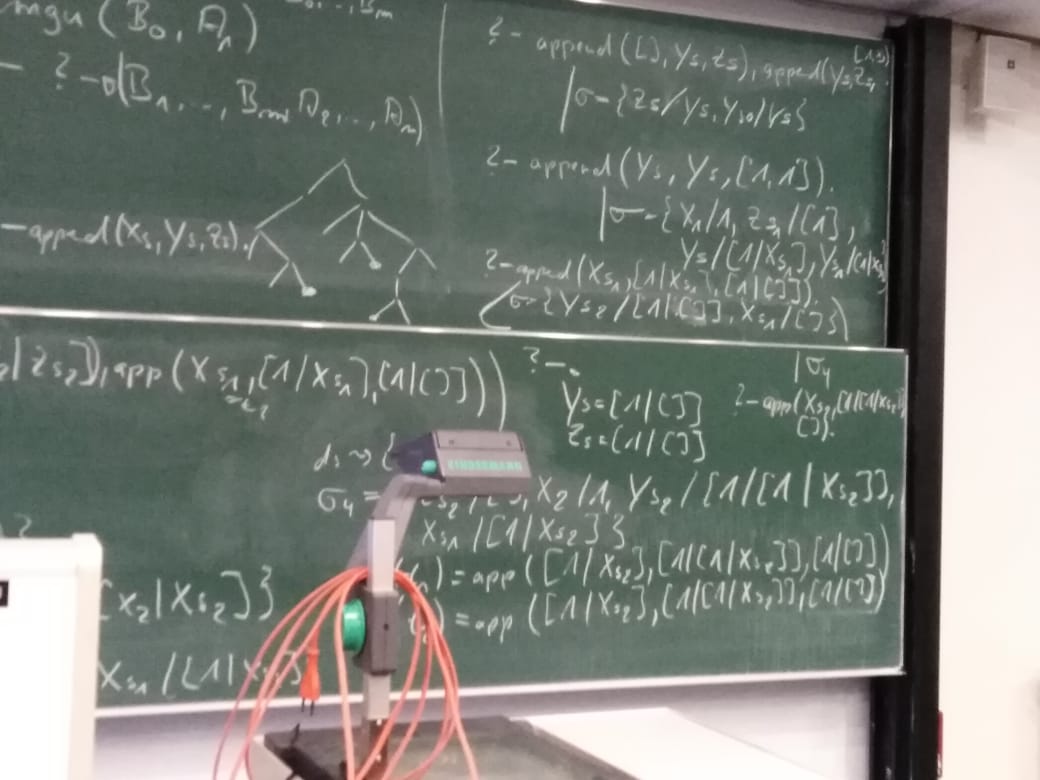 mgu (B₀, A₁)
?-▯(B₁,..., Bₘ, A₂,..., Aₙ)
-append(Xs, Ys, Zs).
?- append([], Ys, Zs), append(Ys, Zs, [1,1])
σ={Zs/Ys, Ys₀/Ys}
?- append(Ys, Ys, [1,1]).
σ={X₁/1, Zs₁/[1],
Ys/[1|Xs₁], Ys₁/[1|Xs₁]}
?- append(Xs₁, [1|Xs₁], [1|[]]).
σ={Ys₂/[1|[]], Xs₁/[]}
|Zs₂]), app(Xs₁, [1|Xs₁], [1|[]]))
?-
Ys=[1|[]]
Zs=[1|[]]
σ₄
?-app(Xs₂, [1|[1|Xs₂]],
[]).
σ₄ =
X₂/1, Ys₂/[1|[1|Xs₂]],
Xs₁/[1|Xs₂]}
= app([1|Xs₂], [1|[1|Xs₂]], [1|[]])
= app([1|Xs₂], [1|[1|Xs₂]], [1|[]])
[X₂|Xs₂]}
Xs₁/[1|
KINDERMANN